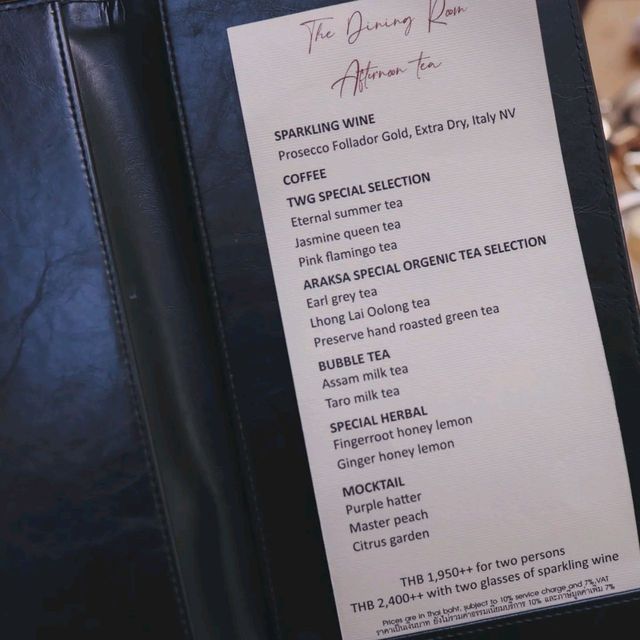 The Dining Room
Afternoon tea
SPARKLING WINE
Prosecco Follador Gold, Extra Dry, Italy NV
COFFEE
TWG SPECIAL SELECTION
Eternal summer tea
Jasmine queen tea
Pink flamingo tea
ARAKSA SPECIAL ORGENIC TEA SELECTION
Earl grey tea
Lhong Lai Oolong tea
Preserve hand roasted green tea
BUBBLE TEA
Assam milk tea
Taro milk tea
SPECIAL HERBAL
Fingerroot honey lemon
Ginger honey lemon
MOCKTAIL
Purple hatter
Master peach
Citrus garden
THB 1,950++ for two persons
THB 2,400++ with two glasses of sparkling wine
Prices are in thai baht, subject to 10% service charge and 7% VAT
ราคาเป็นเงินบาท ยังไม่รวมค่าธรรมเนียมบริการ 10% และภาษีมูลค่าเพิ่ม 7%